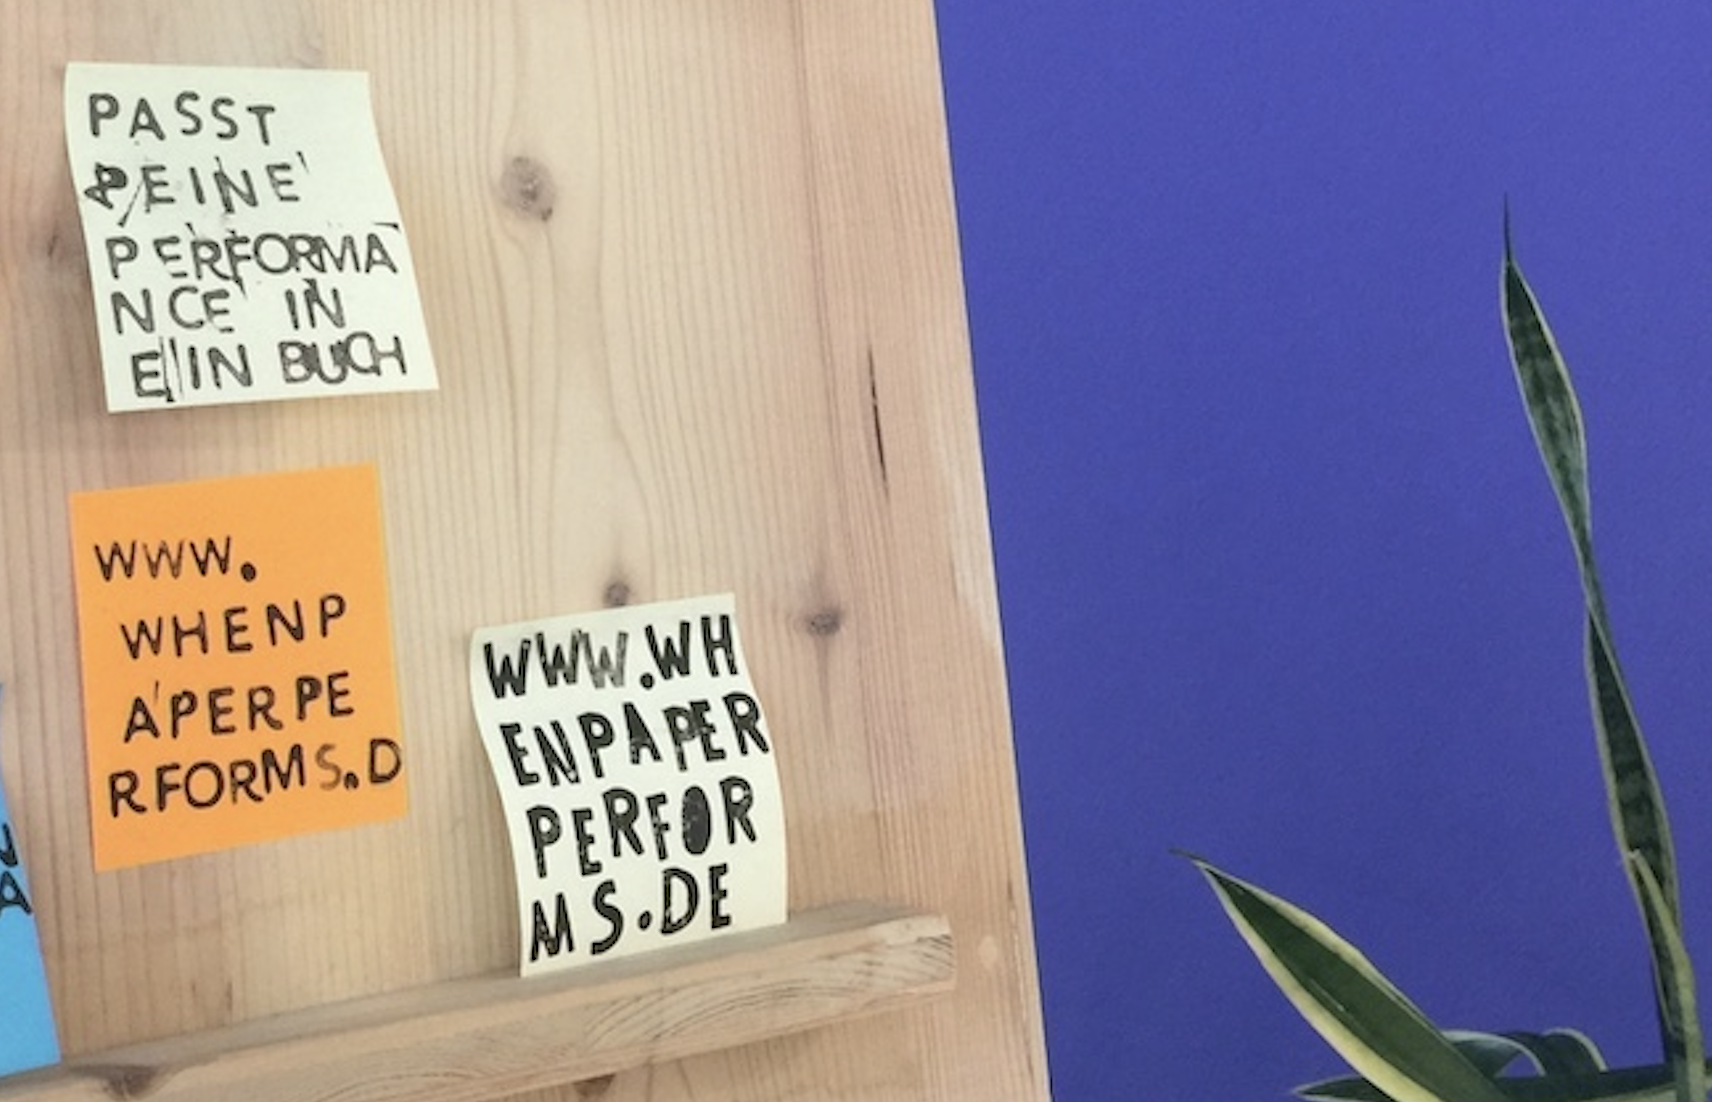 PASST
PEINE
PERFORMA
NCE IN
EIN BUCH
WWW.
WHENP
APERPE
RFORMS.D
WWW.WH
ENPAPER
PERFOR
MS.DE